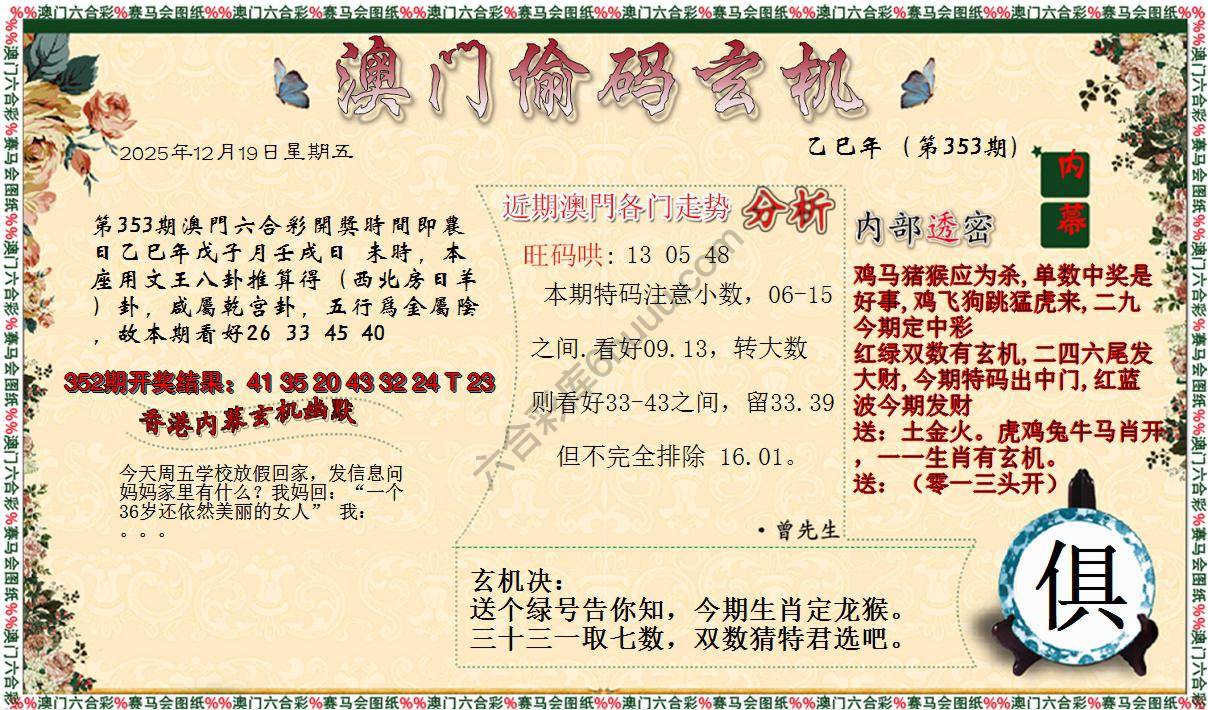 %%澳门六合彩%赛马会图纸%%澳门六合彩%赛马会图纸%%澳门六合彩%赛马会图纸%%澳门六合彩%赛马会图纸%%澳门六合彩%赛马会图纸%%澳门六合彩%赛马会图纸%%
澳门偷码玄机
2025年12月19日星期五
乙巳年（第353期）
内幕
第353期澳門六合彩開獎時間即農
日乙巳年戊子月壬戌日 未時，本
座用文王八卦推算得（西北房日羊
）卦，咸屬乾宫卦，五行爲金屬陰
，故本期看好26 33 45 40
352期开奖结果：41 35 20 43 32 24 T 23
香港内幕玄机幽默
今天周五学校放假回家，发信息问
妈妈家里有什么？我妈回：“一个
36岁还依然美丽的女人” 我：
。。。
近期澳門各门走势 分析
旺码哄: 13 05 48
本期特码注意小数，06-15
之间.看好09.13，转大数
则看好33-43之间，留33.39
但不完全排除 16.01。
·曾先生
内部透密
鸡马猪猴应为杀,单数中奖是
好事,鸡飞狗跳猛虎来,二九
今期定中彩
红绿双数有玄机,二四六尾发
大财,今期特码出中门,红蓝
波今期发财
送：土金火。虎鸡兔牛马肖开
，一一生肖有玄机。
送：（零一三头开）
玄机决：
送个绿号告你知，今期生肖定龙猴。
三十三一取七数，双数猜特君选吧。
俱
%%澳门六合彩%赛马会图纸%%澳门六合彩%赛马会图纸%%澳门六合彩%赛马会图纸%%澳门六合彩%赛马会图纸%%澳门六合彩%赛马会图纸%%澳门六合彩%赛马会图纸%%